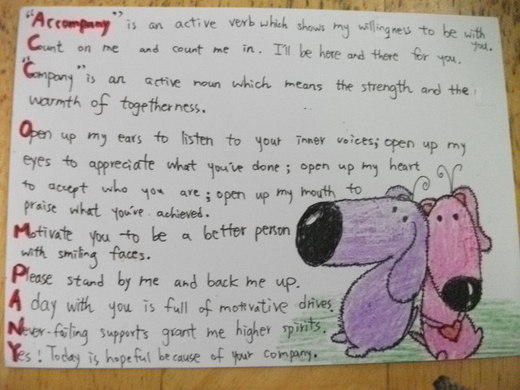 "Accompany" is an active verb which shows my willingness to be with
you.
Count on me and count me in. I'll be here and there for you.
"Company" is an active noun which means the strength and the
warmth of togetherness.
Open up my ears to listen to your inner voices; open up my
eyes to appreciate what you've done; open up my heart
to accept who you are; open up my mouth to
praise what you've achieved.
Motivate you to be a better person
with smiling faces.
Please stand by me and back me up.
A day with you is full of motivative drives.
Never-failing supports grant me higher spirits.
Yes! Today is hopeful because of your company.